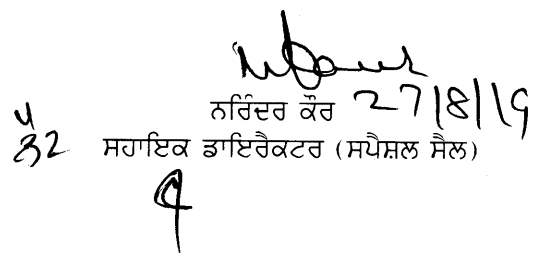 ਨਰਿੰਦਰ ਕੌਰ 27/8/19
ਸਹਾਇਕ ਡਾਇਰੈਕਟਰ (ਸਪੈਸ਼ਲ ਸੈਲ)